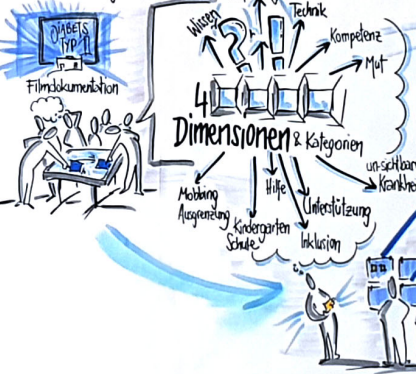 DIABETES
TYP 1
Filmdokumentation
Wissen
Technik
Kompetenz
Mut
?
!
4
Dimensionen & Kategorien
un-sichtbar
Krankhei
Mobbing
Ausgrenzung
Kindergarten
Schule
Hilfe
Unterstützung
Inklusion